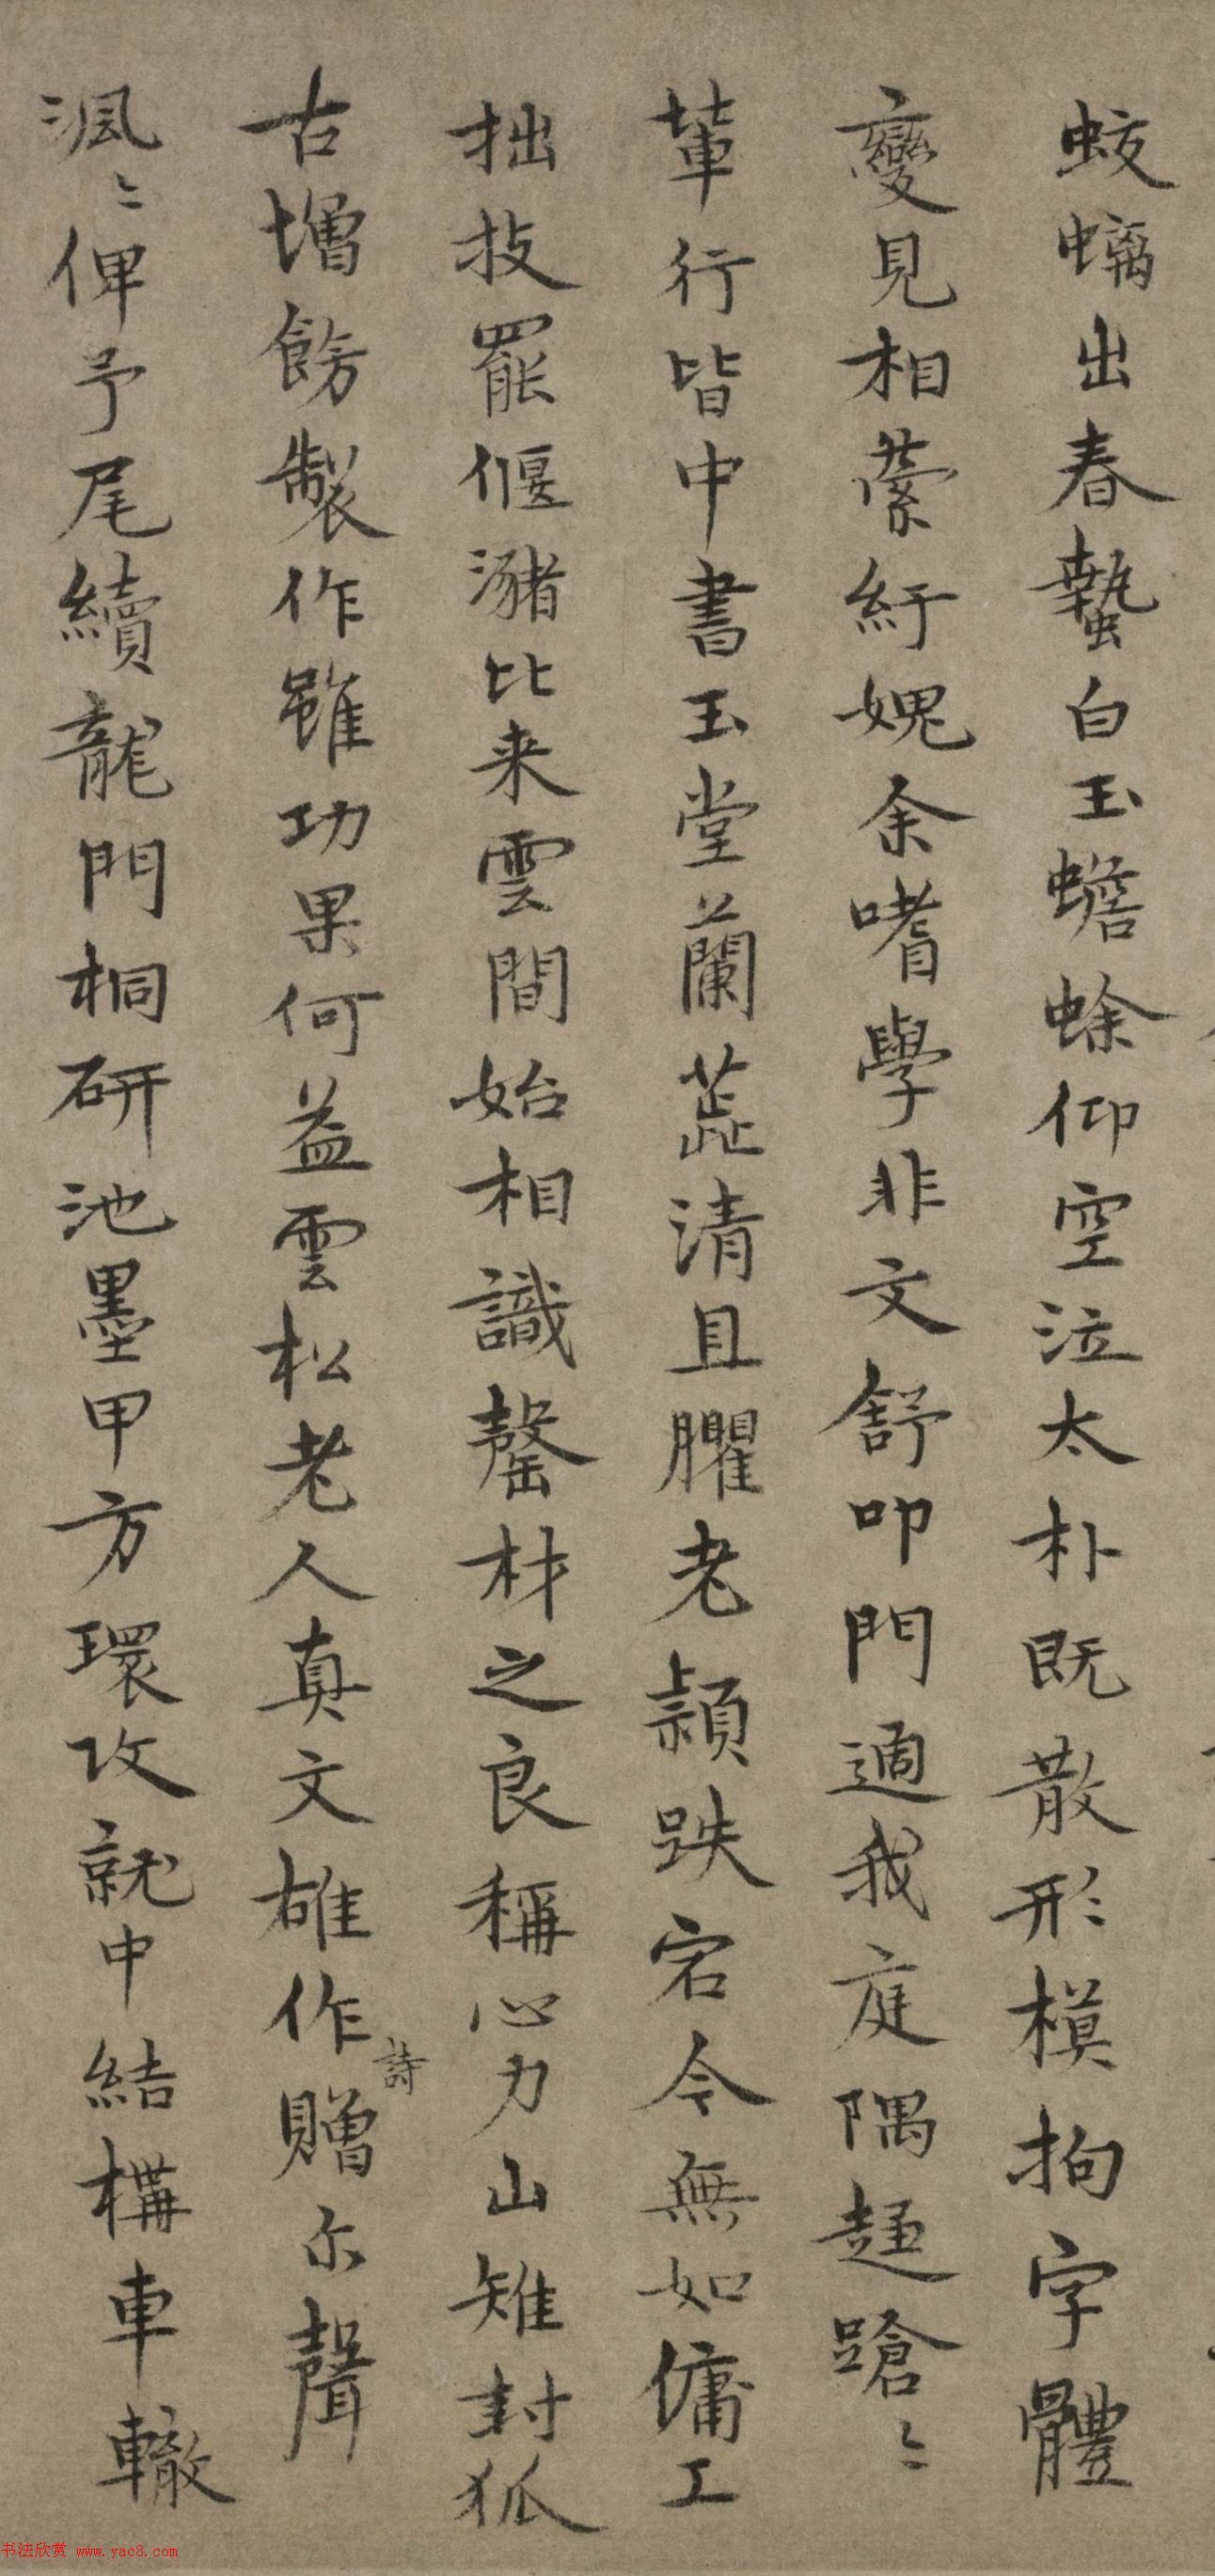 蛟螭出春蟄白玉蟾蜍仰空泣太朴既散形模拘字體
變見相縈紆媿余嗜學非文舒叩門適我庭隅趨蹌〻
輩行皆中書玉堂蘭茝清且臞老穎跌宕今無如傭工
拙技罷偃瀦比来雲間始相識罄材之良稱心力山雉封狐
古增飭製作雖功果何益雲松老人真文雄作詩贈尓聲
渢〻俾予尾續龍門桐研池墨甲方環攻就中結構車轍
书法欣赏 www.yac8.com